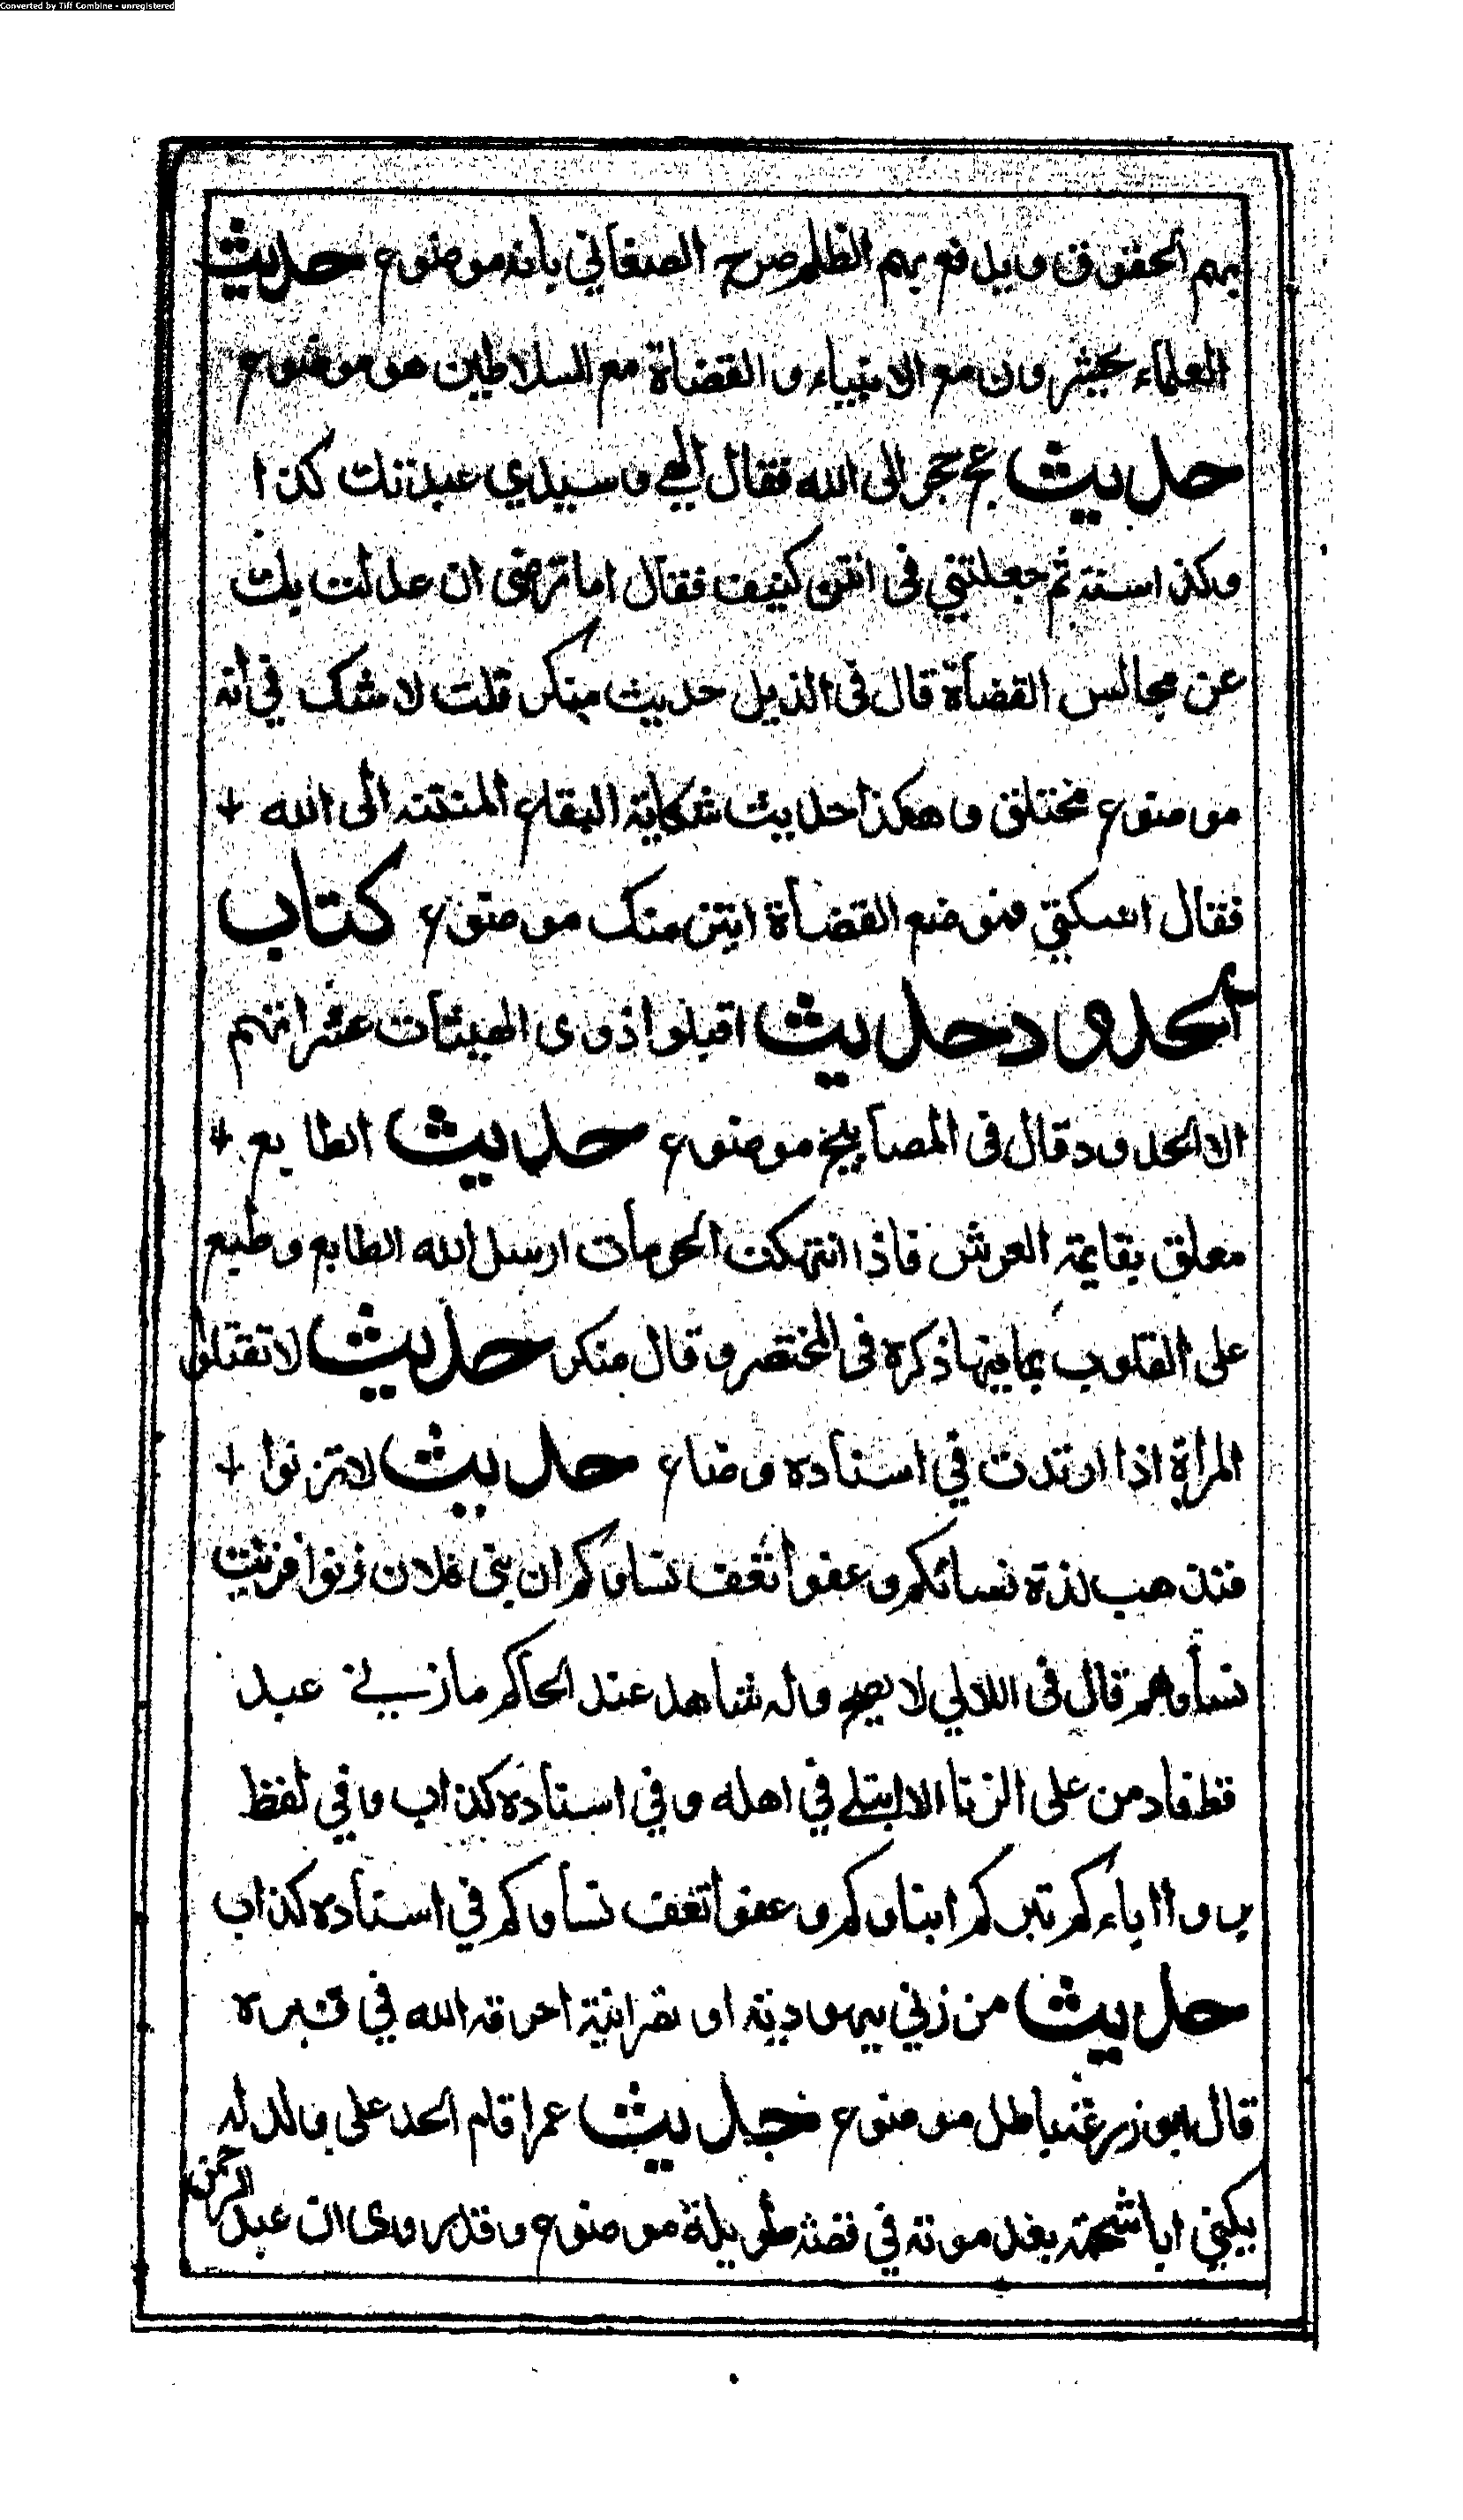 Converted by Tiff Combine - unregistered
بهم الحقوق ويدفع بهم الظلم صرح الصغاني بأنه موضوع حديث
العلماء يحشرون مع الانبياء والقضاة مع السلاطين هو موضوع
حديث عج حجر الى الله فقال الهي وسيدي عبدتك كذا
وكذا سنة ثم جعلتني في اس كنيف فقال اما ترضى ان عدلت بك
عن مجالس القضاة قال في الذيل حديث منكر قلت لا شك في أنه
موضوع مختلق وهكذا حديث شكاية البقاع المنتنه الى الله
فقال اسكتي فموضع القضاة انتن منك موضوع كتاب
الحدود حديث اقيلوا ذوى الهيئات عثراتهم
الا الحدود قال في المصابيح موضوع حديث الطابع
معلق بقايمة العرش فاذا انتهكت الحرمات ارسل الله الطابع وطبع
على القلوب بما فيها ذكره في المختصر وقال منكر حديث لا تقتل
المراة اذا ارتدت في اسناده وضاع حديث لا تزنوا
فتذهب لذة نسائكم وعفوا تعف نساوكم ان بني فلان زنوا فزنت
نساوهم قال في اللالي لا يصح وله شاهد عند الحاكم ما زني عبد
قط فادمن على الزنا الا ابتلي في اهله وفي اسناده كذاب وفي لفظ
بروا اباءكم تبركم ابناوكم وعفوا تعف نساوكم في اسناده كذاب
حديث من زني بيهودية او نصرانية احرقه الله في قبره
قال ابو زرعة باطل موضوع حديث عمر اقام الحد على ولد له
يكني ابا شحمة بعد موته في قصة طويلة موضوع وقد روى ان عبد
الرحمن